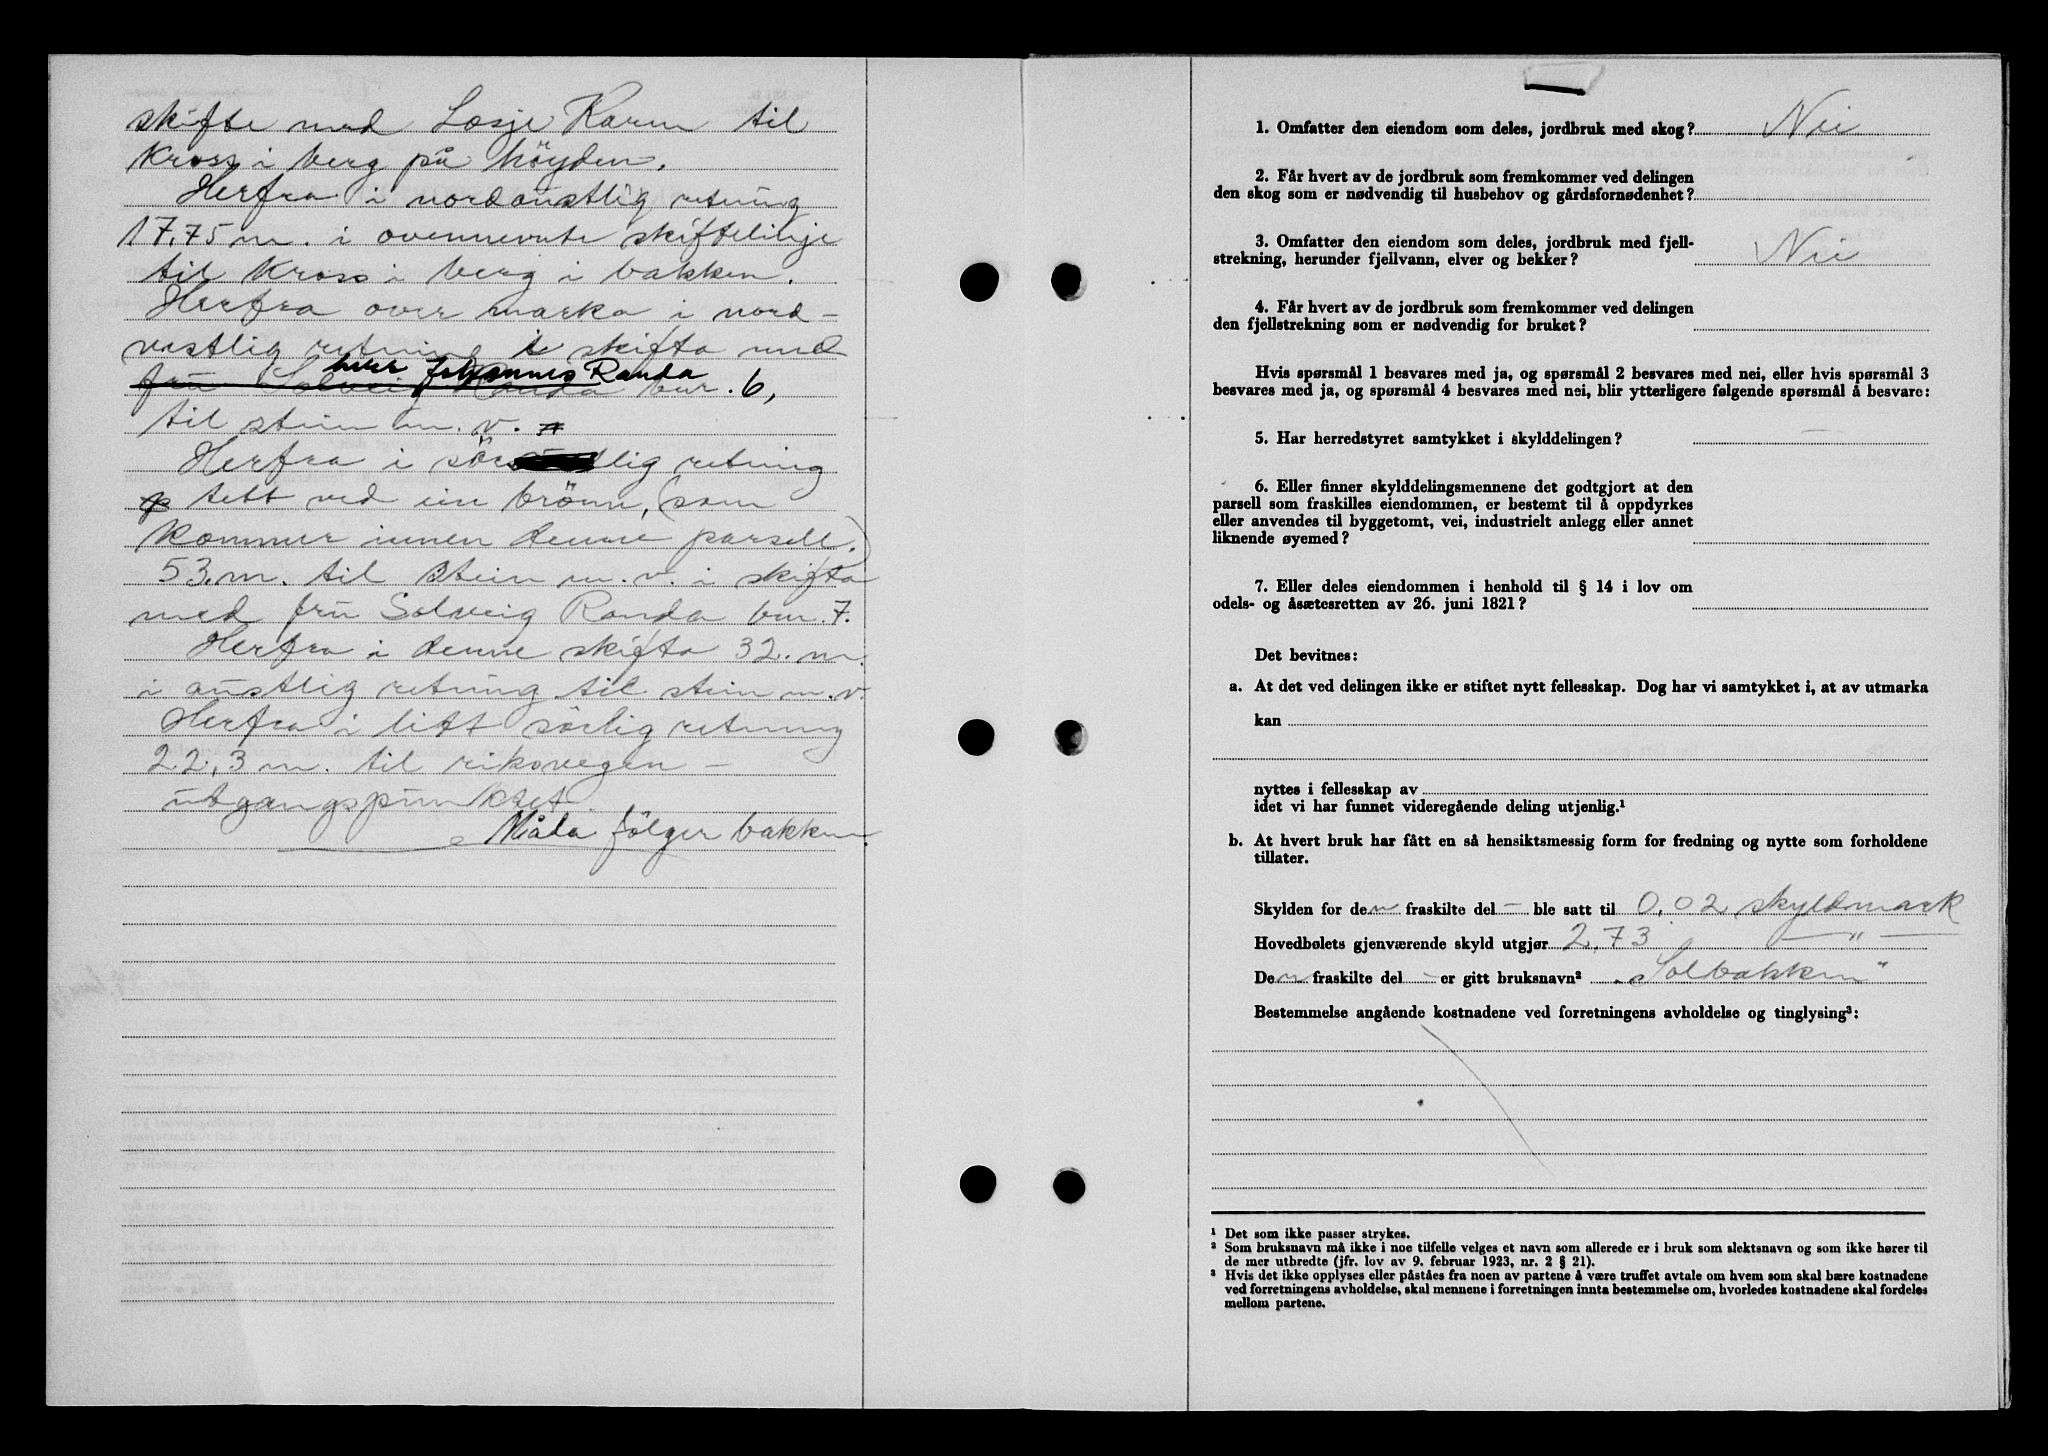 skifte med Losje Karm til
Kross i berg på höyden.
Herfra i nordaustlig retning
17,75 m. i ovennevnte skiftelinje
til Kross i berg i bakken.
Herfra over marka i nord-
vestlig retning i skifta med
herr Johannes Randa
fru Solveig Randa bnr. 6,
til stein m. v.
Herfra i sör lig retning
tett ved ein brönn, (som
Kommer innen denne parsell.)
53. m. til stein m. v. i skifta
med fru Solveig Randa bnr. 7.
Herfra i denne skifta 32. m.
i austlig retning til stein m. v.
Herfra i litt sörlig retning
22,3 m. til riksvegen –
utgangspunktet.
Måla fölger bakken.
1. Omfatter den eiendom som deles, jordbruk med skog? Nei
2. Får hvert av de jordbruk som fremkommer ved delingen
den skog som er nødvendig til husbehov og gårdsfornødenhet?
3. Omfatter den eiendom som deles, jordbruk med fjell-
strekning, herunder fjellvann, elver og bekker? Nei
4. Får hvert av de jordbruk som fremkommer ved delingen
den fjellstrekning som er nødvendig for bruket?
Hvis spørsmål 1 besvares med ja, og spørsmål 2 besvares med nei, eller hvis spørsmål 3
besvares med ja, og spørsmål 4 besvares med nei, blir ytterligere følgende spørsmål å besvare:
5. Har herredstyret samtykket i skylddelingen?
6. Eller finner skylddelingsmennene det godtgjort at den
parsell som fraskilles eiendommen, er bestemt til å oppdyrkes
eller anvendes til byggetomt, vei, industrielt anlegg eller annet
liknende øyemed?
7. Eller deles eiendommen i henhold til § 14 i lov om
odels- og åsætesretten av 26. juni 1821?
Det bevitnes:
a. At det ved delingen ikke er stiftet nytt fellesskap. Dog har vi samtykket i, at av utmarka
kan
nyttes i fellesskap av
idet vi har funnet videregående deling utjenlig.¹
b. At hvert bruk har fått en så hensiktsmessig form for fredning og nytte som forholdene
tillater.
Skylden for den fraskilte del – ble satt til 0,02 skyldmark
Hovedbølets gjenværende skyld utgjør 2,73 — " —
Den fraskilte del – er gitt bruksnavn² „Solbakken"
Bestemmelse angående kostnadene ved forretningens avholdelse og tinglysing³:
¹ Det som ikke passer strykes.
² Som bruksnavn må ikke i noe tilfelle velges et navn som allerede er i bruk som slektsnavn og som ikke hører til
de mer utbredte (jfr. lov av 9. februar 1923, nr. 2 § 21).
³ Hvis det ikke opplyses eller påståes fra noen av partene å være truffet avtale om hvem som skal bære kostnadene
ved forretningens avholdelse, skal mennene i forretningen innta bestemmelse om, hvorledes kostnadene skal fordeles
mellom partene.